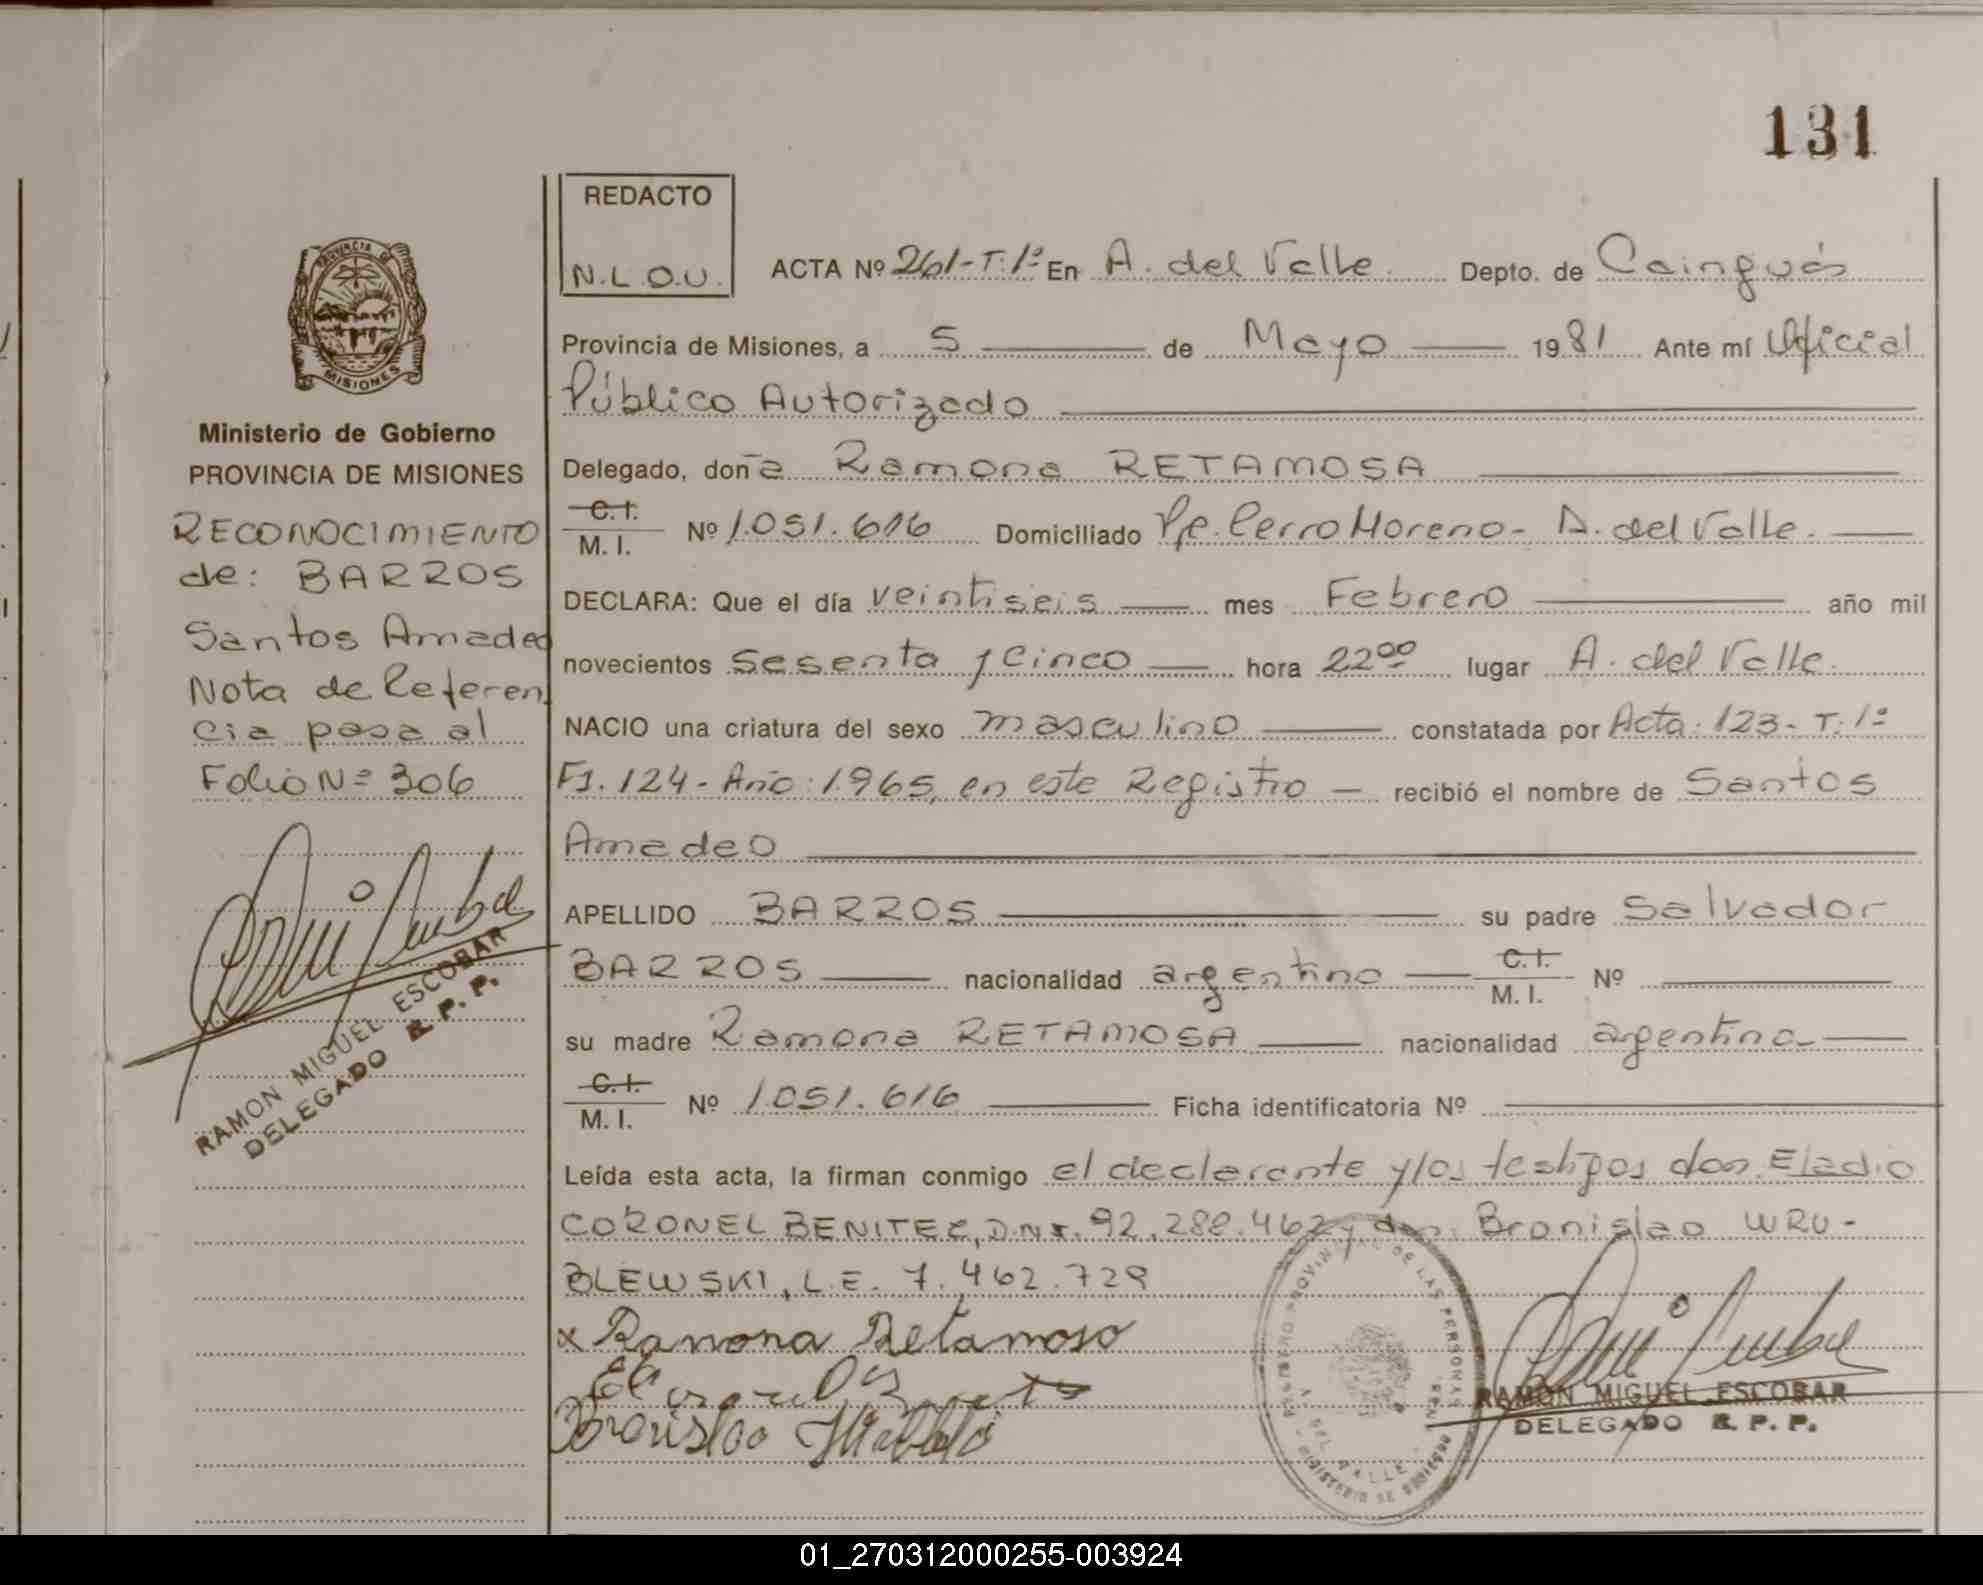 131
REDACTO
N.L.O.U.
ACTA Nº 261-T.1º En A. del Valle. Depto. de Cainguás
Provincia de Misiones, a 5 de Mayo 1981 Ante mí Oficial
Público Autorizado
Delegado, don~a Ramona RETAMOSA
C.I.
M. I. Nº 1.051.616 Domiciliado Pje. Cerro Moreno- A. del Valle.
DECLARA: Que el día veintiseis mes Febrero año mil
novecientos sesenta y cinco hora 22⁰⁰ lugar A. del Valle.
NACIO una criatura del sexo masculino constatada por Acta: 123- T: 1º
Fº. 124- Año: 1.965, en este Registro — recibió el nombre de Santos
Amadeo
APELLIDO BARROS su padre Salvador
BARROS nacionalidad argentino C.I.
M. I. Nº
su madre Ramona RETAMOSA nacionalidad argentina
C.I.
M. I. Nº 1.051.616 Ficha identificatoria Nº
Leída esta acta, la firman conmigo el declarante y los testigos don Eladio
CORONEL BENITEZ, D.N.I. 92.288.462 y don Bronislao WRU-
BLEWSKI, L.E. 7.462.729
x Ramona Retamoso
Bronislao
REGISTRO PROVINCIAL DE LAS PERSONAS
DEL VALLE
MINISTERIO DE GOBIERNO
RAMON MIGUEL ESCOBAR
DELEGADO R. P. P.
PROVINCIA DE
MISIONES
Ministerio de Gobierno
PROVINCIA DE MISIONES
RECONOCIMIENTO
de: BARROS
Santos Amadeo
Nota de Referen
cia pasa al
Folio Nº 306
RAMON MIGUEL ESCOBAR
DELEGADO R. P. P.
01_270312000255-003924